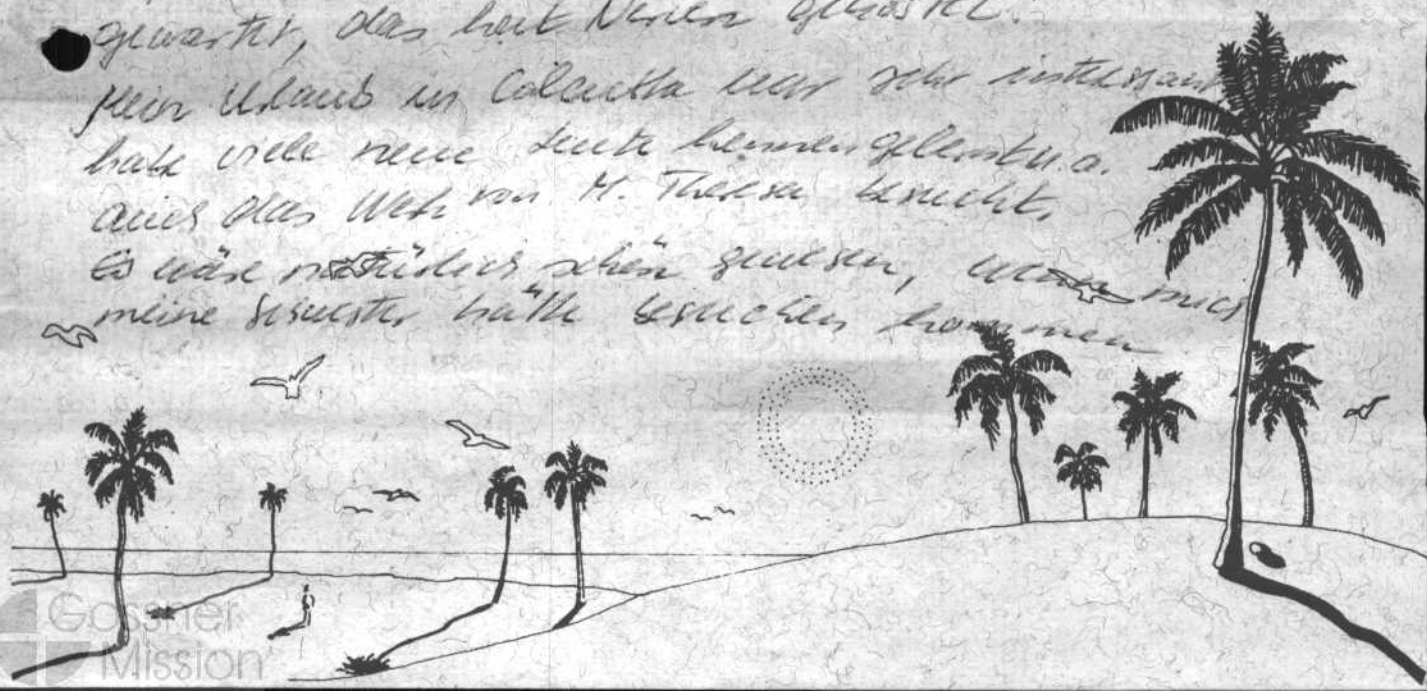 gewartet, das hat Nerven gekostet.
Mein Urlaub in Calcutta war sehr interessant
habe viele neue Leute kennengelernt u.a.
auch das Werk von M. Theresa besucht.
Es wäre natürlich schön gewesen, wenn mich
meine Schwester hätte besuchen kommen
Gossner
Mission